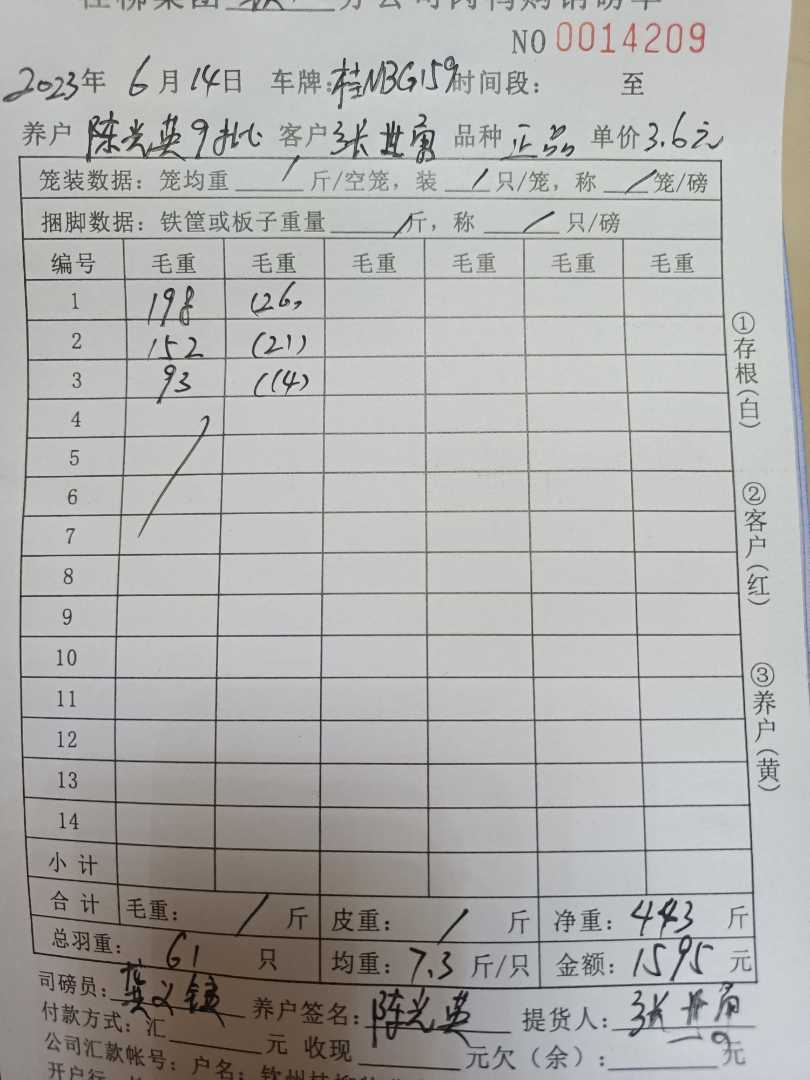 桂柳集团 分公司肉鸭购销磅单
NO 0014209
2023年 6月 14日 车牌:桂N3G159 时间段: 至
养户 陈光英9批 客户 张世勇 品种 正品 单价3.6元
笼装数据: 笼均重 / 斤/空笼, 装 / 只/笼, 称 / 笼/磅
捆脚数据: 铁筐或板子重量 / 斤, 称 / 只/磅
编号 毛重 毛重 毛重 毛重 毛重 毛重
1 198 (26)
2 152 (21)
3 93 (14)
4
5
6
7
8
9
10
11
12
13
14
小计
合计 毛重: / 斤 皮重: / 斤 净重: 443 斤
总羽重: 61 只 均重: 7.3 斤/只 金额: 1595 元
司磅员: 养户签名: 陈光英 提货人: 张世勇
付款方式: 汇 元 收现 元欠(余): 元
公司汇款帐号: 户名: 钦州桂柳
开户行
①存根(白)
②客户(红)
③养户(黄)